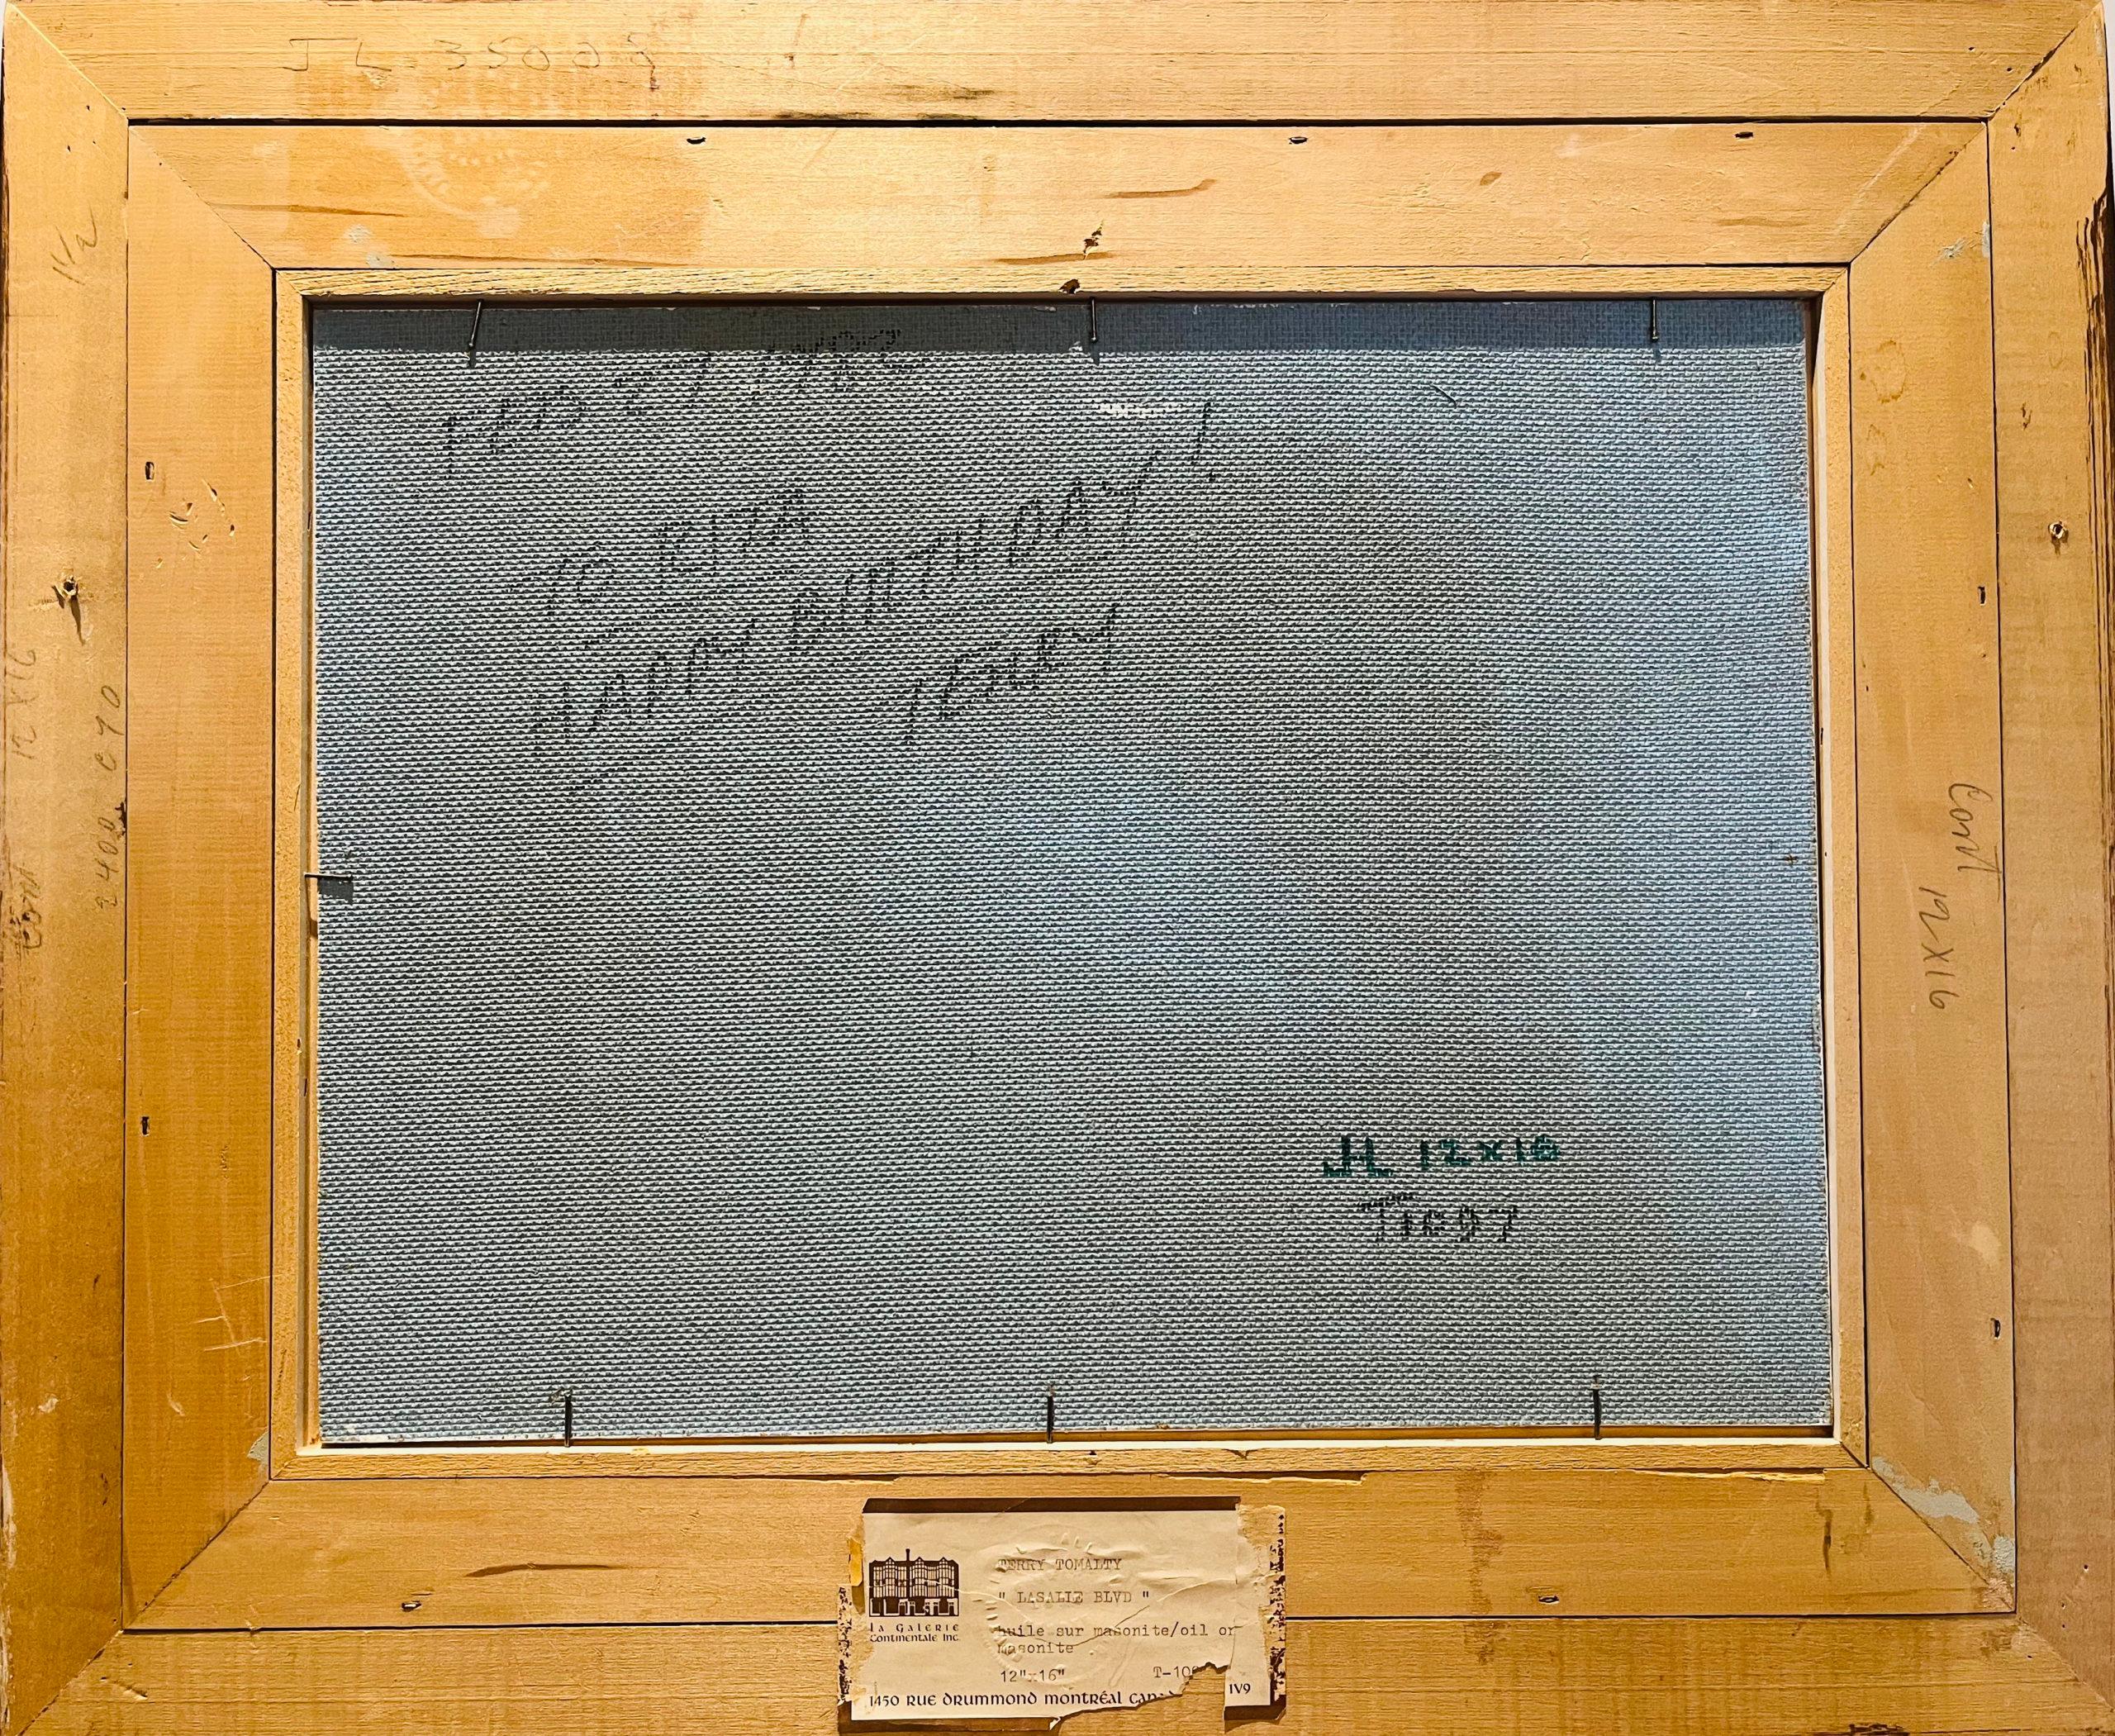 JL 3500
1 1/2
FEB 27
TO RITA
HAPPY BIRTHDAY!
TERRY
12 X 16
2400 C 90
Cont
12X16
JL 12x16
T1097
TERRY TOMALTY
" LASALLE BLVD "
huile sur masonite/oil on
masonite
12"x16" T-10
La Galerie
Continentale Inc.
1450 RUE DRUMMOND MONTRÉAL 1V9